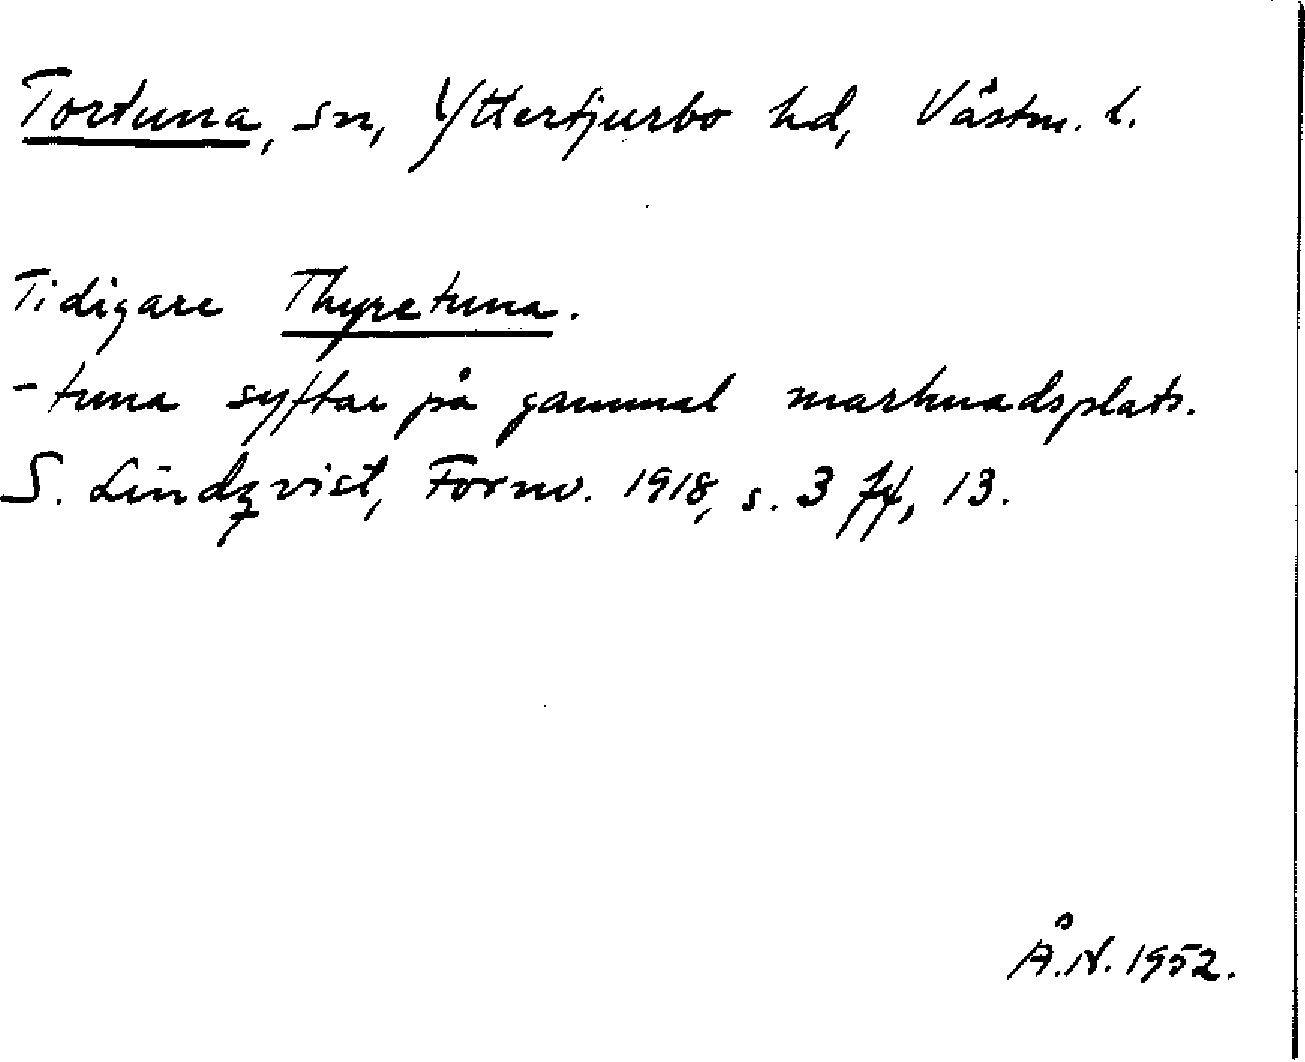 Tortuna, sn, Yttertjurbo hd, Västm. l.
Tidigare Thyretuna.
-tuna syftar på gammal marknadsplats.
S. Lindqvist, Fornv. 1918, s. 3 ff, 13.
Å.N. 1952.